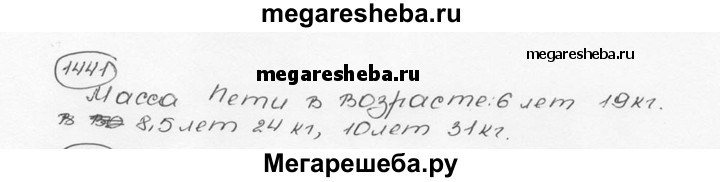 megaresheba.ru
megaresheba.ru
1441
megaresheba.ru
Масса Пети в возрасте: 6 лет 19 кг.
в 8,5 лет 24 кг, 10 лет 31 кг.
Мегарешеба.ру